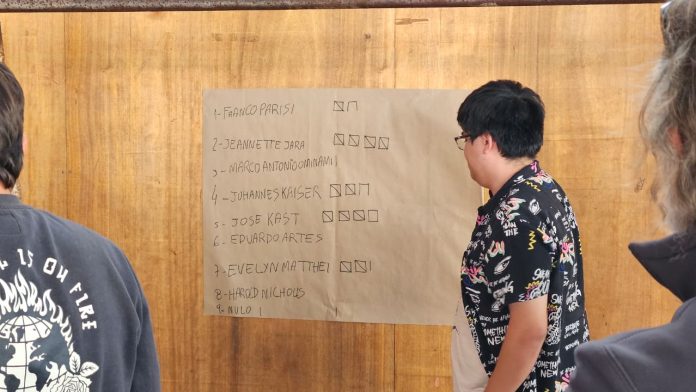 1- FRANCO PARISI
2- JEANNETTE JARA
3- MARCO ANTONIO OMINAMI
4- JOHANNES KAISER
5- JOSE KAST
6- EDUARDO ARTES
7- EVELYN MATTHEI
8- HAROLD NICHOLLS
9- NULO
IS ON FIRE